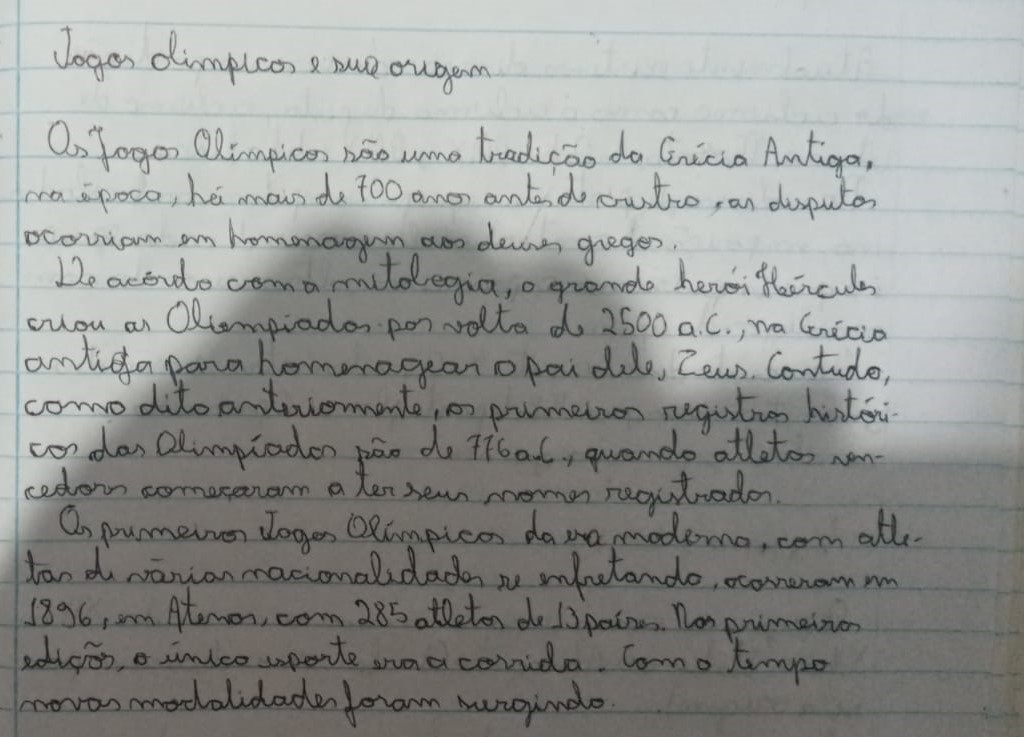 Jogos olimpicos e sua origem
Os Jogos Olímpicos são uma tradição da Grécia Antiga,
na época, há mais de 700 anos antes de cristro, as disputas
ocorriam em homenagem aos deuses gregos.
De acôrdo com a mitologia, o grande herói Hércules
criou as Oliempiadas por volta de 2500 a.C., na Grécia
antiga para homenagear o pai dele, Zeus. Contudo,
como dito anteriormente, os primeiros registros históri-
cos das Olimpíadas são de 776 a.C., quando atletas ven-
cedores começaram a ter seus nomes registrados.
Os primeiros Jogos Olímpicos da era moderna, com atle-
tas de várias nacionalidades se enfretando, ocorreram em
1896, em Atenas, com 285 atletas de 13 países. Nas primeiras
edições, o único esporte era a corrida. Com o tempo
novas modalidades foram surgindo.